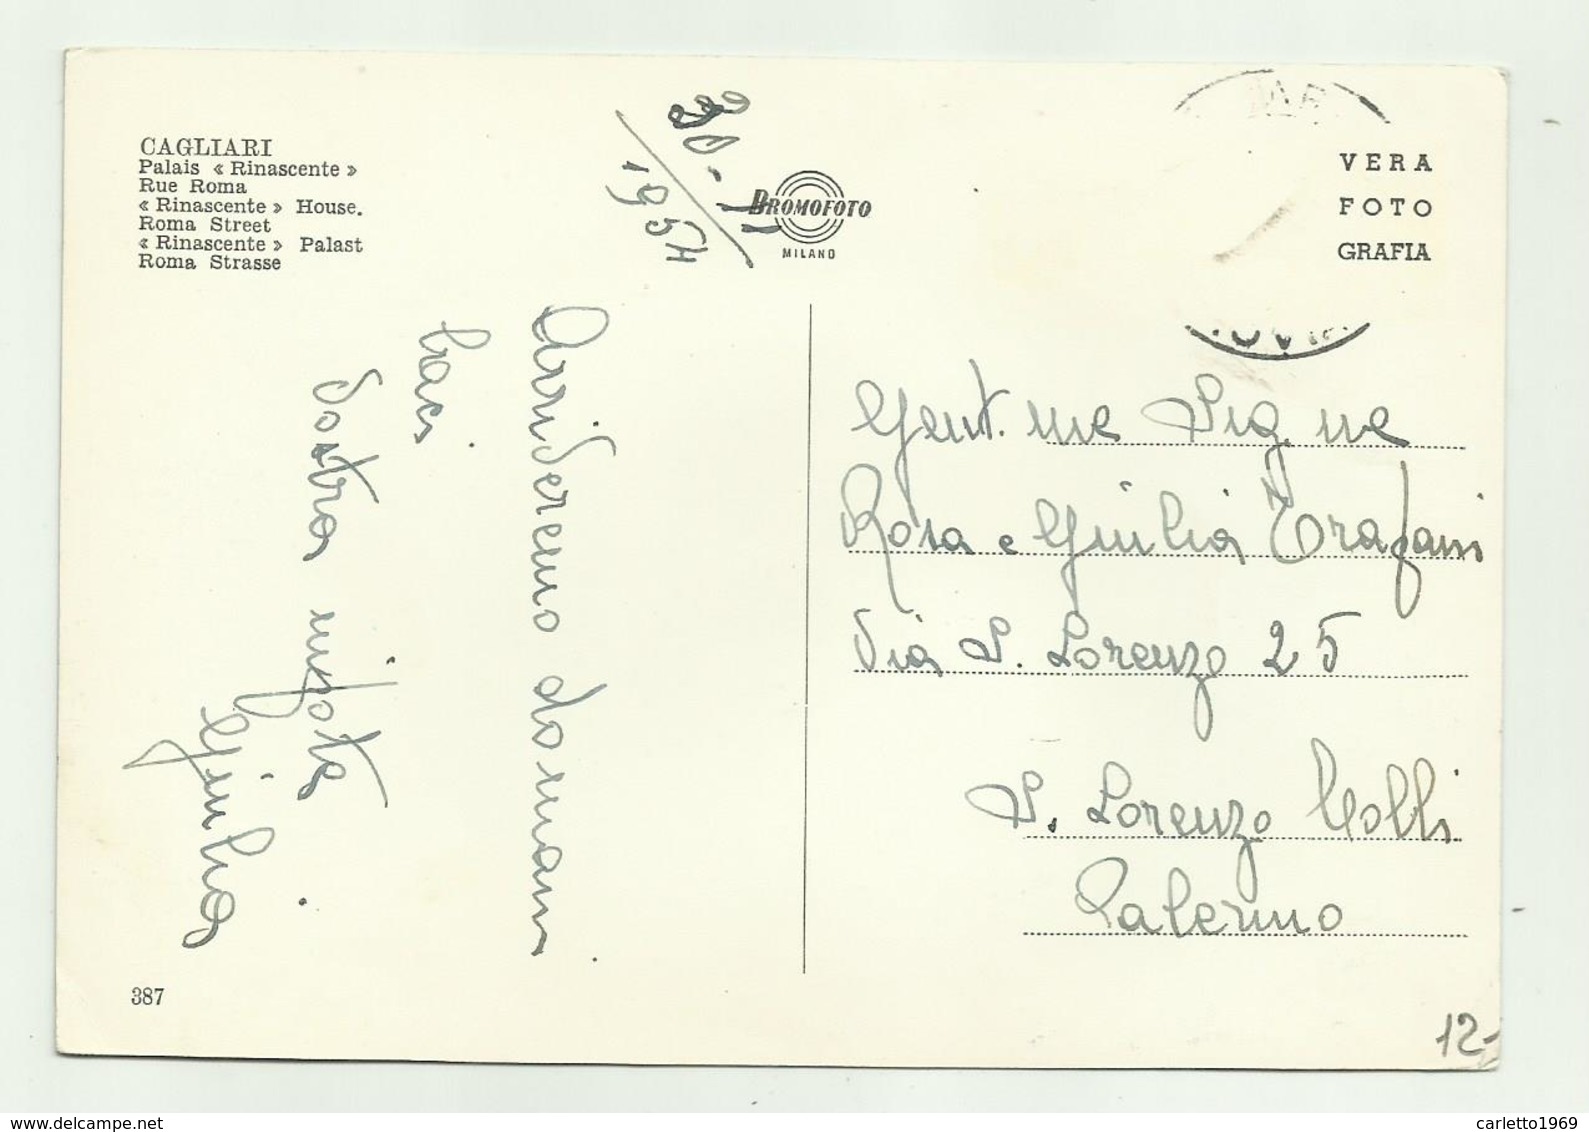 CAGLIARI
Palais « Rinascente »
Rue Roma
« Rinascente » House.
Roma Street
« Rinascente » Palast
Roma Strasse
30-11
1954
BROMOFOTO
MILANO
VERA
FOTO
GRAFIA
Arrideremo domani.
baci
Vostra nipote
Giulia
Gent.me Sig.ne
Rosa e Giulia Trapani
Via S. Lorenzo 25
S. Lorenzo Colli
Palermo
387
12-
carletto1969